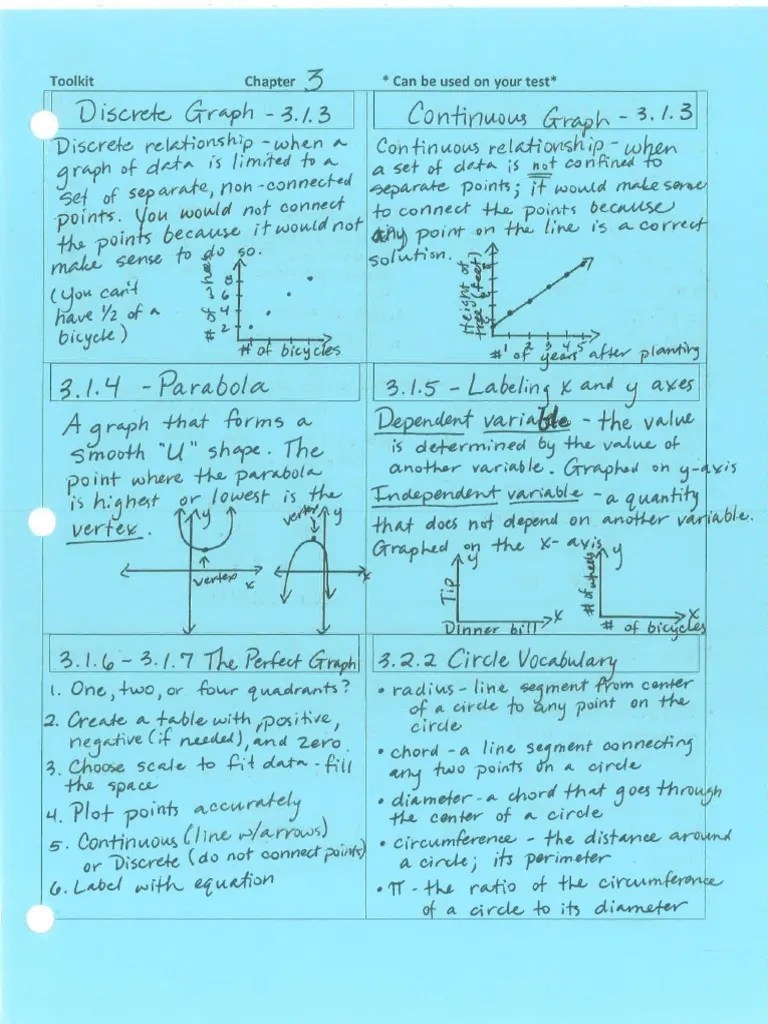 Toolkit Chapter 3 * Can be used on your test*
Discrete Graph - 3.1.3
Discrete relationship - when a
graph of data is limited to a
set of separate, non-connected
points. You would not connect
the points because it would not
make sense to do so.
(You can't
have 1/2 of a
bicycle)
8
6
4
2
# of bicycles
Continuous Graph - 3.1.3
Continuous relationship - when
a set of data is not confined to
separate points; it would make sense
to connect the points because
any point on the line is a correct
solution.
Height of
tree (feet)
1 2 3 4 5
# of years after planting
3.1.4 - Parabola
A graph that forms a
smooth "U" shape. The
point where the parabola
is highest or lowest is the
vertex.
y
vertex
x
vertex
y
x
3.1.5 - Labeling x and y axes
Dependent variable - the value
is determined by the value of
another variable. Graphed on y-axis
Independent variable - a quantity
that does not depend on another variable.
Graphed on the x-axis
y
Tip
x
Dinner bill
y
# of wheels
x
# of bicycles
3.1.6 - 3.1.7 The Perfect Graph
1. One, two, or four quadrants?
2. Create a table with positive,
negative (if needed), and zero.
3. Choose scale to fit data - fill
the space
4. Plot points accurately
5. Continuous (line w/arrows)
or Discrete (do not connect points)
6. Label with equation
3.2.2 Circle Vocabulary
• radius - line segment from center
of a circle to any point on the
circle
• chord - a line segment connecting
any two points on a circle
• diameter - a chord that goes through
the center of a circle
• circumference - the distance around
a circle; its perimeter
• π - the ratio of the circumference
of a circle to its diameter